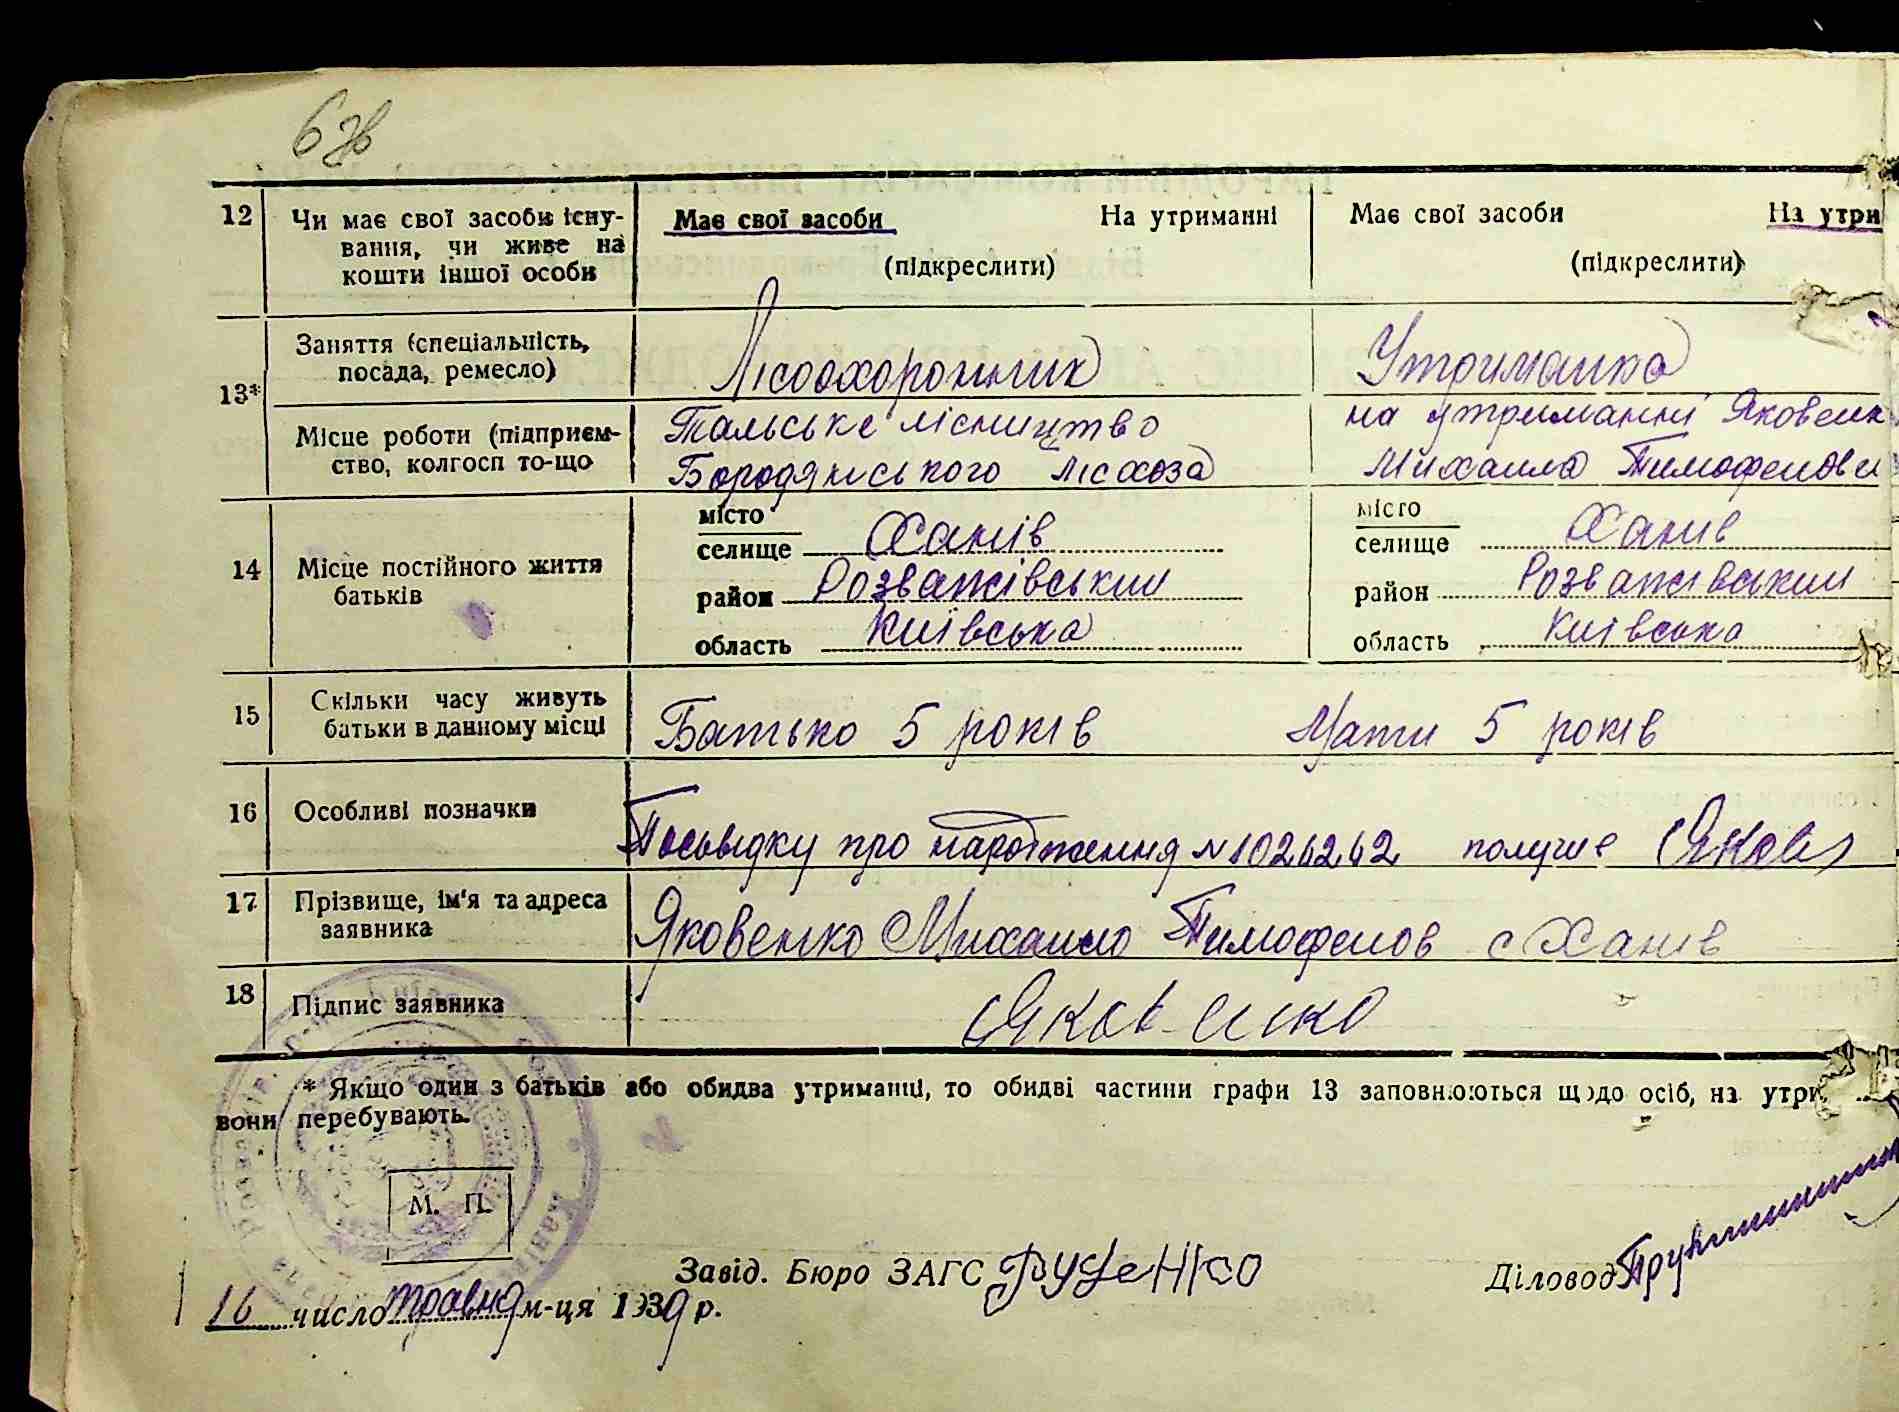 67б
12 Чи має свої засоби існу- Має свої засоби На утриманні Має свої засоби На утри
вання, чи живе на
кошти іншої особи (підкреслити) (підкреслити)
13* Заняття (спеціальність, Лісоохоронник Утриманка
посада, ремесло)
Місце роботи (підприєм- Тальське лісництво на утриманні Яковенк
ство, колгосп то-що Бородянського лісхоза Михаила Тимофейови
14 Місце постійного життя місто місто
батьків селище Ханів селище Ханів
район Розважівський район Розважівський
область Київська область Київська
15 Скільки часу живуть Батько 5 років Мати 5 років
батьки в данному місці
16 Особливі позначки Посьвідку про народження № 1026262 получив Яков
17 Прізвище, ім'я та адреса Яковенко Михаило Тимофейов с Ханів
заявника
18 Підпис заявника Яковенко
* Якщо один з батьків або обидва утриманці, то обидві частини графи 13 заповнюються щодо осіб, на утри
вони перебувають.
М. П.
Завід. Бюро ЗАГС Руденко Діловод
16 число травня м-ця 1939 р.